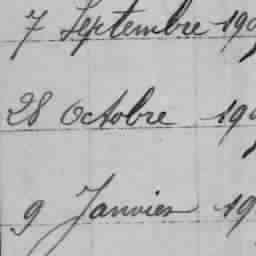 7 Septembre 190
28 Octobre 190
9 Janvier 19